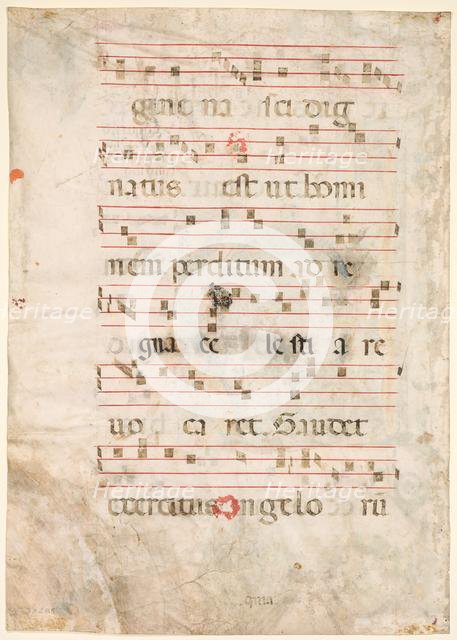 gine na sci dig
Heritage Heritage
natus est ut homi
nem perditum ad re
Heritage Heritage
gna ce le sti a re
uo ca ret. Gaudet
Heritage Heritage
exercitus angelo rū
quia